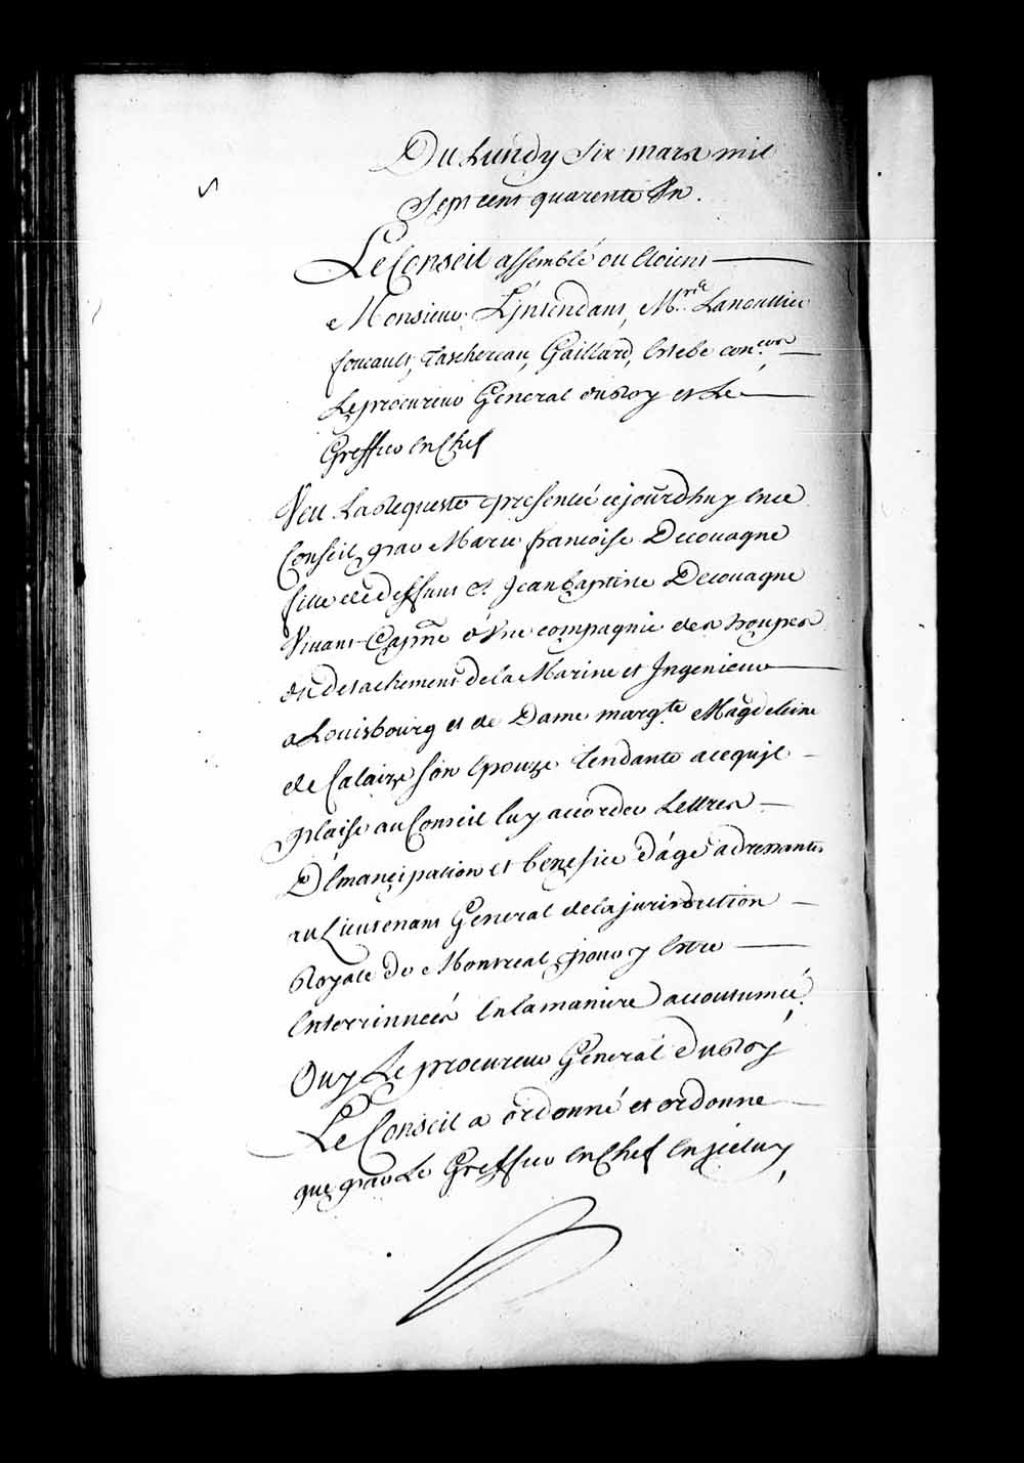 Du Lundy Six mars mil
Sept cent quarente Un.
Le Conseil assemblé ou Etoient
Monsieur L'Intendant, Mrs. Lanoullier
foucault, Taschereau, Gaillard, Estebe coners.
Le procureur General du Roy et Le
Greffier en Chef
Veu La Requeste presentée cejourd'huy en ce
Conseil par Marie francoise Decouagne
fille de deffunt Sr. Jean baptiste Decouagne
Vivant Capne. d'Une compagnie des troupes
du detachement de la Marine et Ingenieur
a Louisbourg et de Dame margte. Magdeleine
de Galaize son Epouze Tendante a ce qu'jl
plaise au Conseil luy accorder Lettres
D'Emancipation et benefice d'âge adressantes
au Lieutenant General de la jurisdiction
Royale de Montreal pour y Estre
Enterrinnées En la maniere accoutumée,
Ouy Le procureur General du Roy
Le Conseil a ordonné et ordonne
que par Le Greffier en Chef En jcelluy,